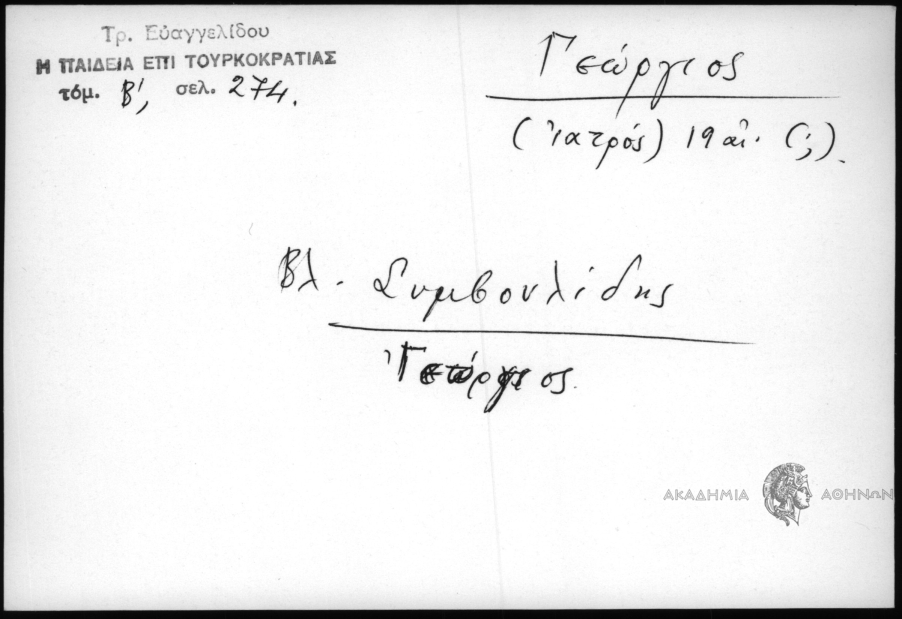 Τρ. Εὐαγγελίδου
Η ΠΑΙΔΕΙΑ ΕΠΙ ΤΟΥΡΚΟΚΡΑΤΙΑΣ
τόμ. Β', σελ. 274.
Γεώργιος
(ἰατρός) 19 αἰ. (;).
Βλ. Συμβουλίδης
Γεώργιος.
ΑΚΑΔΗΜΙΑ ΑΘΗΝΩΝ